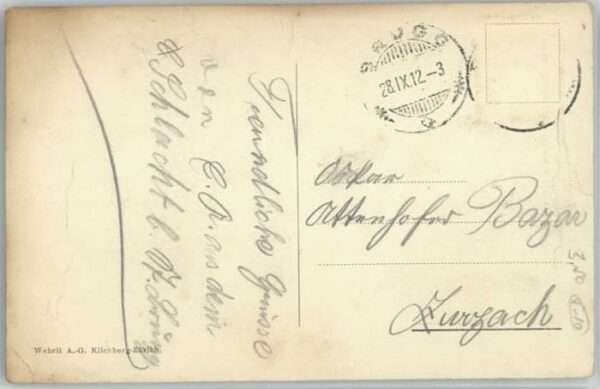 Freundliche Grüsse
von C. A. aus dem
Schlacht b.
BRUGG
28.IX.12-3
Oskar
Attenhofer Bazar
Zurzach
Wehrli A.-G. Kilchberg-Zürich